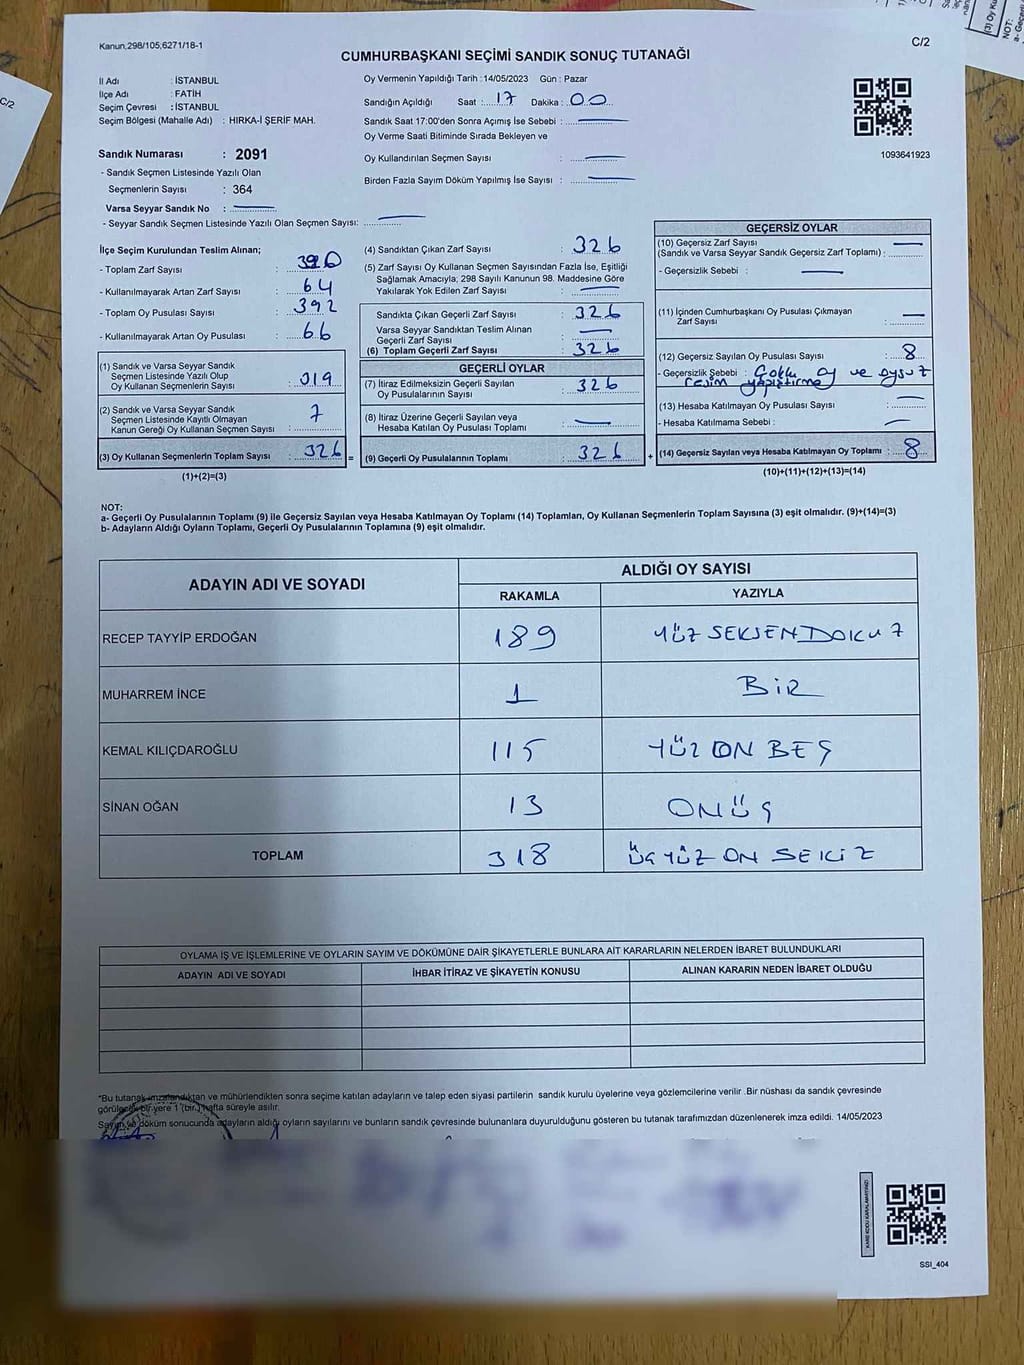 Kanun,298/105;6271/18-1
C/2
CUMHURBAŞKANI SEÇİMİ SANDIK SONUÇ TUTANAĞI
İl Adı : İSTANBUL
İlçe Adı : FATİH
Seçim Çevresi : İSTANBUL
Seçim Bölgesi (Mahalle Adı) : HIRKA-İ ŞERİF MAH.
Sandık Numarası : 2091
- Sandık Seçmen Listesinde Yazılı Olan
Seçmenlerin Sayısı : 364
Varsa Seyyar Sandık No :
- Seyyar Sandık Seçmen Listesinde Yazılı Olan Seçmen Sayısı:
Oy Vermenin Yapıldığı Tarih :14/05/2023 Gün : Pazar
Sandığın Açıldığı Saat : 17 Dakika : 00
Sandık Saat 17:00'den Sonra Açımış İse Sebebi :
Oy Verme Saati Bitiminde Sırada Bekleyen ve
Oy Kullandırılan Seçmen Sayısı :
Birden Fazla Sayım Döküm Yapılmış İse Sayısı :
1093641923
İlçe Seçim Kurulundan Teslim Alınan;
- Toplam Zarf Sayısı : 390
- Kullanılmayarak Artan Zarf Sayısı : 64
- Toplam Oy Pusulası Sayısı : 392
- Kullanılmayarak Artan Oy Pusulası : 66
(1) Sandık ve Varsa Seyyar Sandık
Seçmen Listesinde Yazılı Olup
Oy Kullanan Seçmenlerin Sayısı : 319
(2) Sandık ve Varsa Seyyar Sandık
Seçmen Listesinde Kayıtlı Olmayan
Kanun Gereği Oy Kullanan Seçmen Sayısı : 7
(3) Oy Kullanan Seçmenlerin Toplam Sayısı : 326 =
(1)+(2)=(3)
(4) Sandıktan Çıkan Zarf Sayısı : 326
(5) Zarf Sayısı Oy Kullanan Seçmen Sayısından Fazla İse, Eşitliği
Sağlamak Amacıyla; 298 Sayılı Kanunun 98. Maddesine Göre
Yakılarak Yok Edilen Zarf Sayısı :
Sandıkta Çıkan Geçerli Zarf Sayısı : 326
Varsa Seyyar Sandıktan Teslim Alınan
Geçerli Zarf Sayısı :
(6) Toplam Geçerli Zarf Sayısı : 326
GEÇERLİ OYLAR
(7) İtiraz Edilmeksizin Geçerli Sayılan
Oy Pusulalarının Sayısı : 326
(8) İtiraz Üzerine Geçerli Sayılan veya
Hesaba Katılan Oy Pusulası Toplamı :
(9) Geçerli Oy Pusulalarının Toplamı : 326 +
GEÇERSİZ OYLAR
(10) Geçersiz Zarf Sayısı
(Sandık ve Varsa Seyyar Sandık Geçersiz Zarf Toplamı) :
- Geçersizlik Sebebi :
(11) İçinden Cumhurbaşkanı Oy Pusulası Çıkmayan
Zarf Sayısı :
(12) Geçersiz Sayılan Oy Pusulası Sayısı : 8
- Geçersizlik Şebebi : Çoklu oy ve oysuz
resim yapıştırma
(13) Hesaba Katılmayan Oy Pusulası Sayısı :
- Hesaba Katılmama Sebebi :
(14) Geçersiz Sayılan veya Hesaba Katılmayan Oy Toplamı : 8
(10)+(11)+(12)+(13)=(14)
NOT:
a- Geçerli Oy Pusulalarının Toplamı (9) ile Geçersiz Sayılan veya Hesaba Katılmayan Oy Toplamı (14) Toplamları, Oy Kullanan Seçmenlerin Toplam Sayısına (3) eşit olmalıdır. (9)+(14)=(3)
b- Adayların Aldığı Oyların Toplamı, Geçerli Oy Pusulalarının Toplamına (9) eşit olmalıdır.
ADAYIN ADI VE SOYADI
ALDIĞI OY SAYISI
RAKAMLA YAZIYLA
RECEP TAYYİP ERDOĞAN 189 YÜZ SEKSEN DOKUZ
MUHARREM İNCE 1 BİR
KEMAL KILIÇDAROĞLU 115 YÜZ ON BEŞ
SİNAN OĞAN 13 ONÜÇ
TOPLAM 318 ÜÇYÜZ ON SEKİZ
OYLAMA İŞ VE İŞLEMLERİNE VE OYLARIN SAYIM VE DÖKÜMÜNE DAİR ŞİKAYETLERLE BUNLARA AİT KARARLARIN NELERDEN İBARET BULUNDUKLARI
ADAYIN ADI VE SOYADI İHBAR İTİRAZ VE ŞİKAYETİN KONUSU ALINAN KARARIN NEDEN İBARET OLDUĞU
*Bu tutanak imzalandıktan ve mühürlendikten sonra seçime katılan adayların ve talep eden siyasi partilerin sandık kurulu üyelerine veya gözlemcilerine verilir .Bir nüshası da sandık çevresinde
görülecek bir yere 1 (bir ) hafta süreyle asılır.
Sayım ve döküm sonucunda adayların aldığı oyların sayılarını ve bunların sandık çevresinde bulunanlara duyurulduğunu gösteren bu tutanak tarafımızdan düzenlenerek imza edildi. 14/05/2023
KARE KODU KARALAMAYINIZ!
SSI_404
C/2